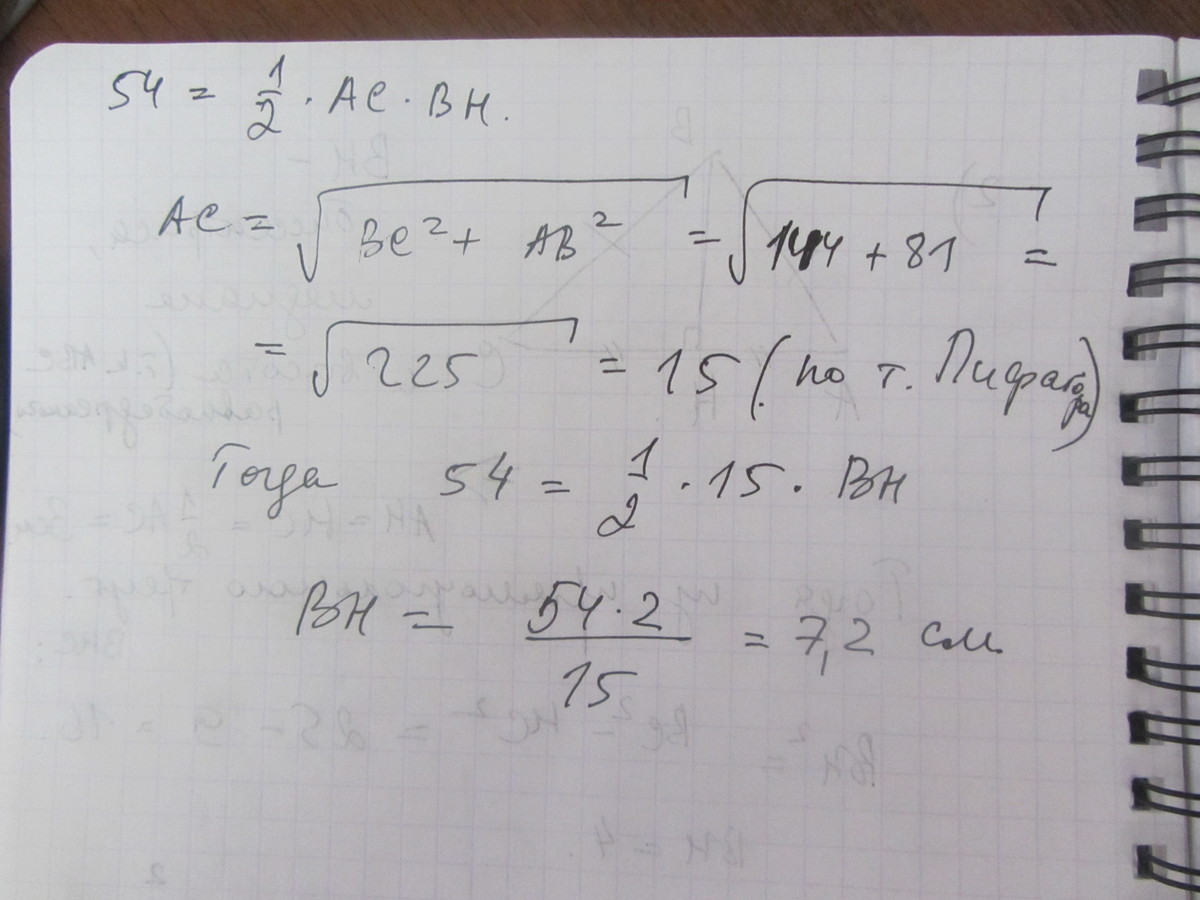 54 = 1/2 · AC · BH.
AC = √(BC² + AB²) = √(144 + 81) =
= √225 = 15 (по т. Пифагора)
Тогда 54 = 1/2 · 15 · BH
BH = 54·2/15 = 7,2 см